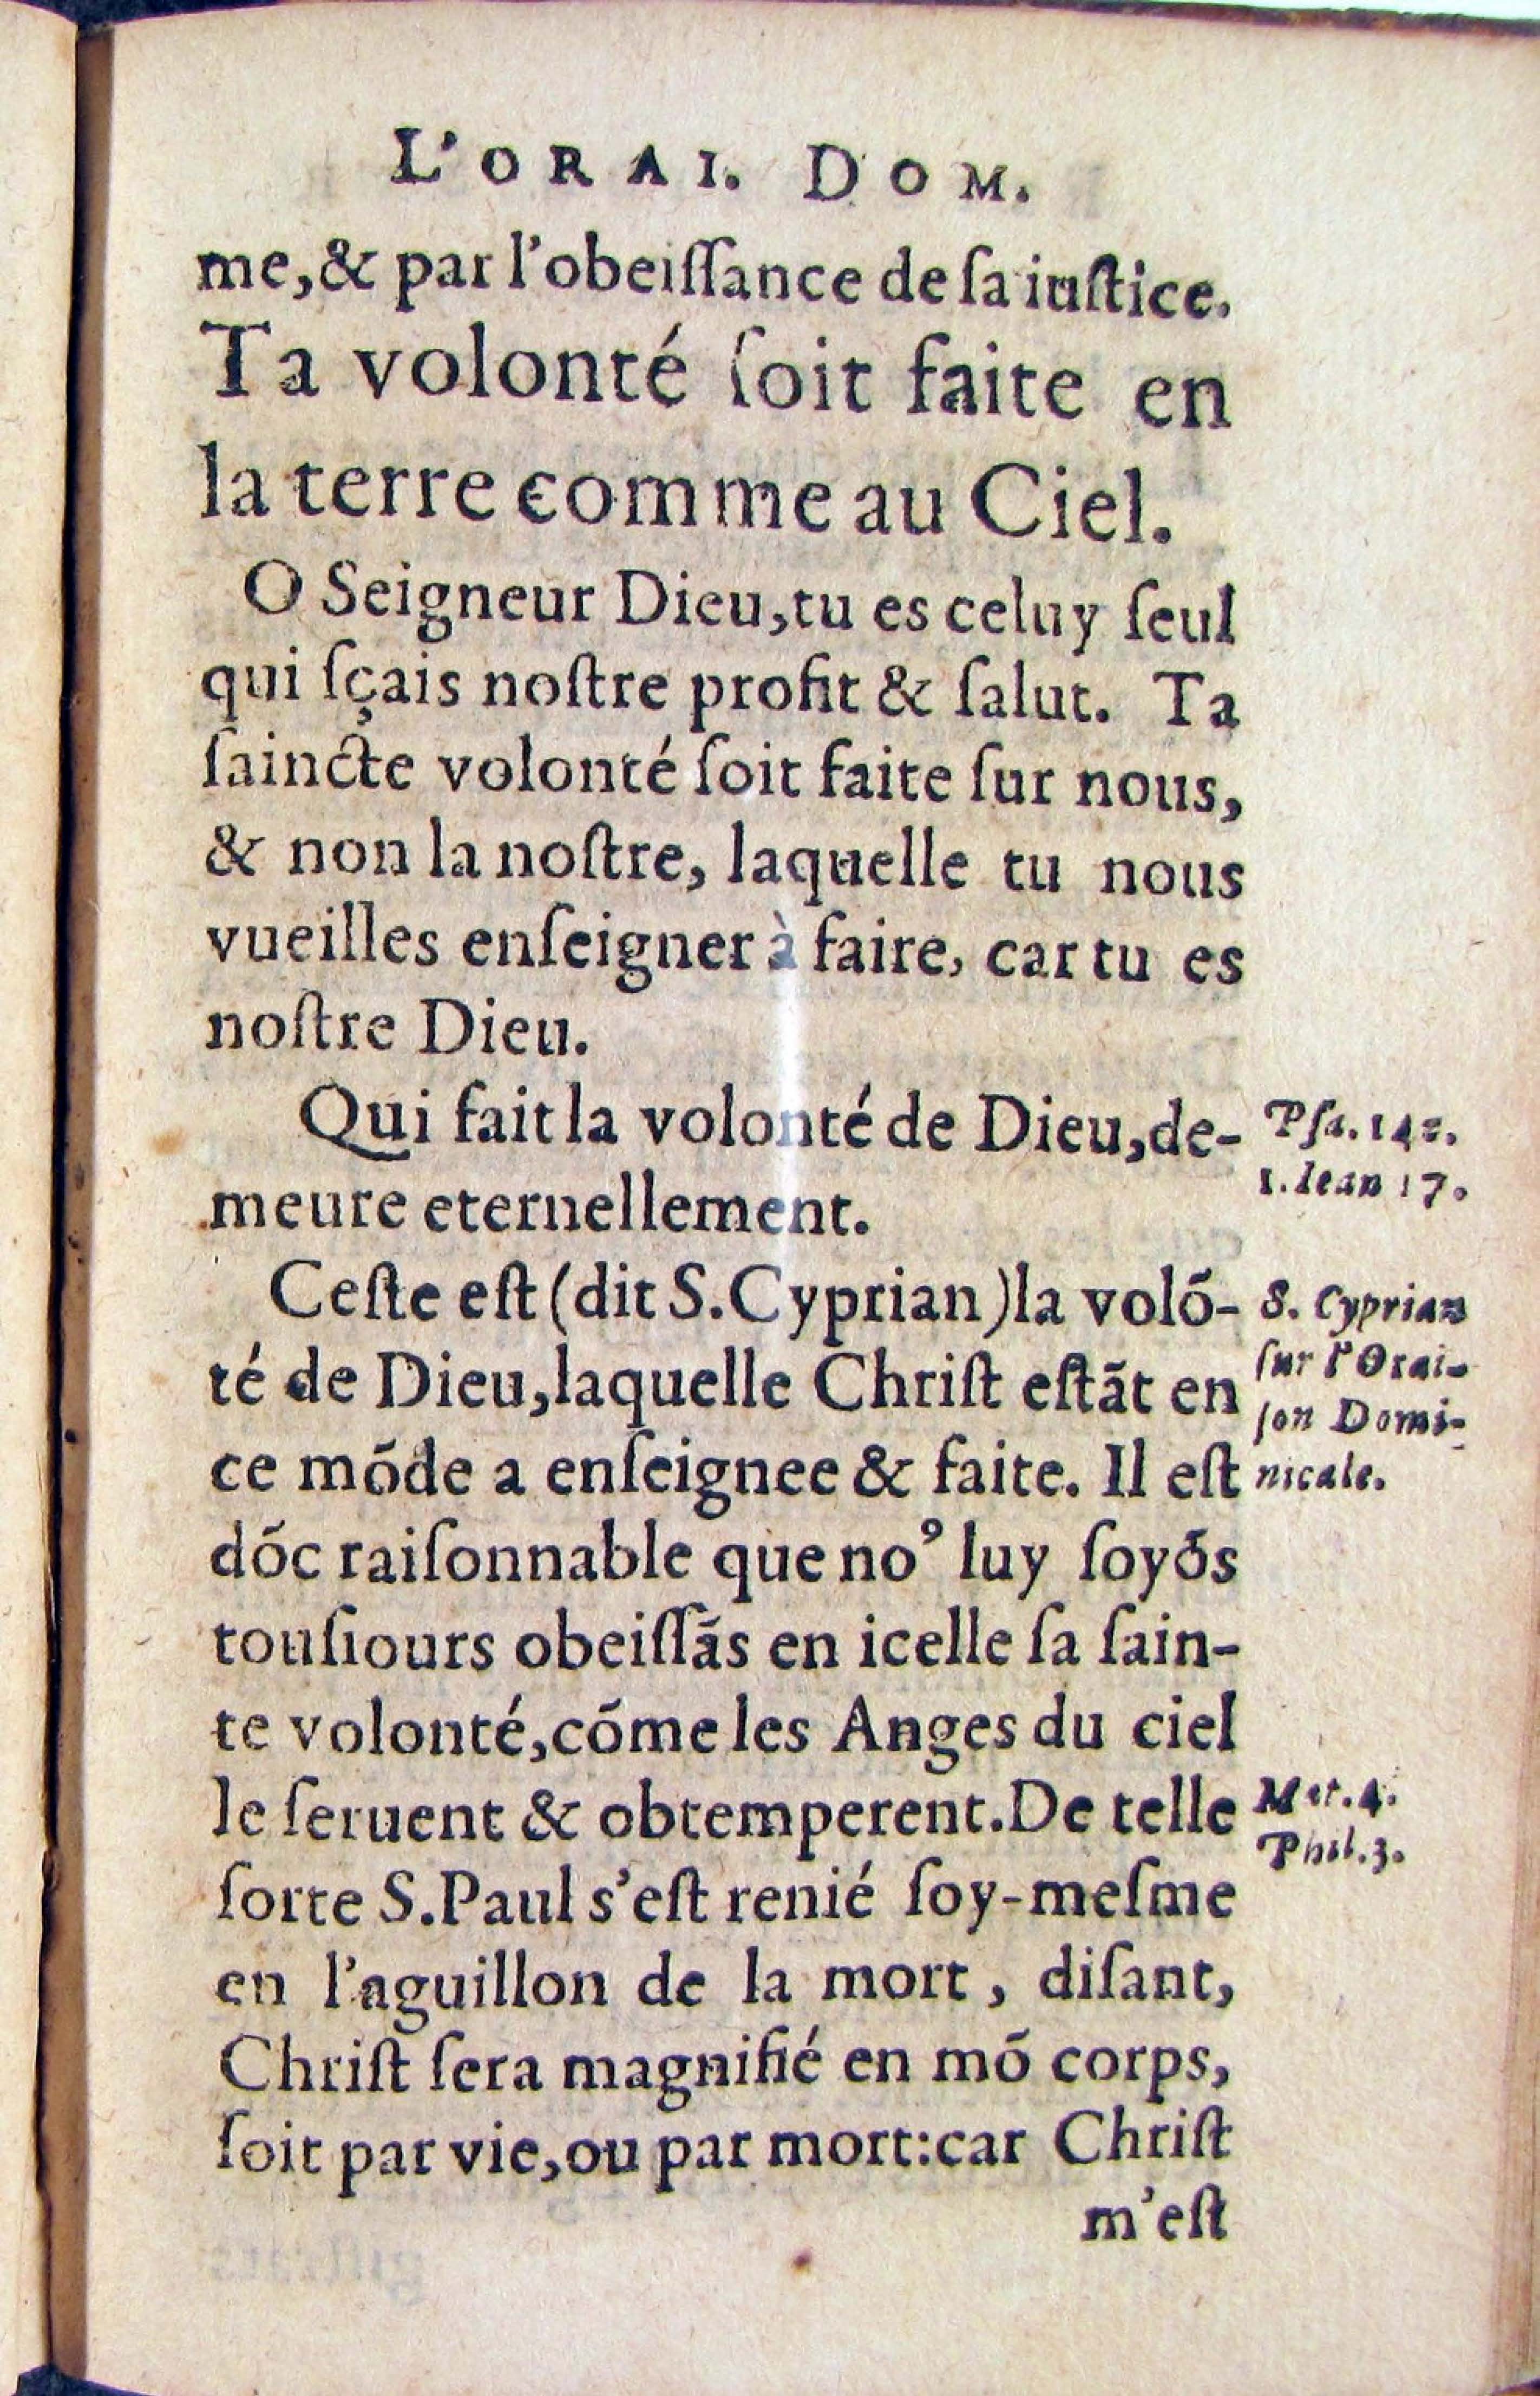 L'ORAI. DOM.
me,& par l'obeiſſance de ſa iuſtice.
Ta volonté ſoit faite en
la terre comme au Ciel.
O Seigneur Dieu,tu es celuy ſeul
qui ſçais noſtre profit & ſalut. Ta
ſaincte volonté ſoit faite ſur nous,
& non la noſtre, laquelle tu nous
vueilles enſeigner à faire, car tu es
noſtre Dieu.
Qui fait la volonté de Dieu,de-
meure eternellement.
Pſa.
1. Iean 17.
Ceſte eſt (dit S.Cyprian) la volõ-
té de Dieu,laquelle Chriſt eſtãt en
ce mõde a enſeignee & faite. Il eſt
dõc raiſonnable que noꝰ luy ſoyõs
touſiours obeiſſãs en icelle ſa ſain-
te volonté,cõme les Anges du ciel
le ſeruent & obtemperent.De telle
ſorte S.Paul s'eſt renié ſoy-meſme
en l'aguillon de la mort, diſant,
Chriſt ſera magnifié en mõ corps,
ſoit par vie,ou par mort:car Chriſt
m'eſt
S. Cyprian
ſur l'Orai-
ſon Domi-
nicale.
Mat.4.
Phil.3.